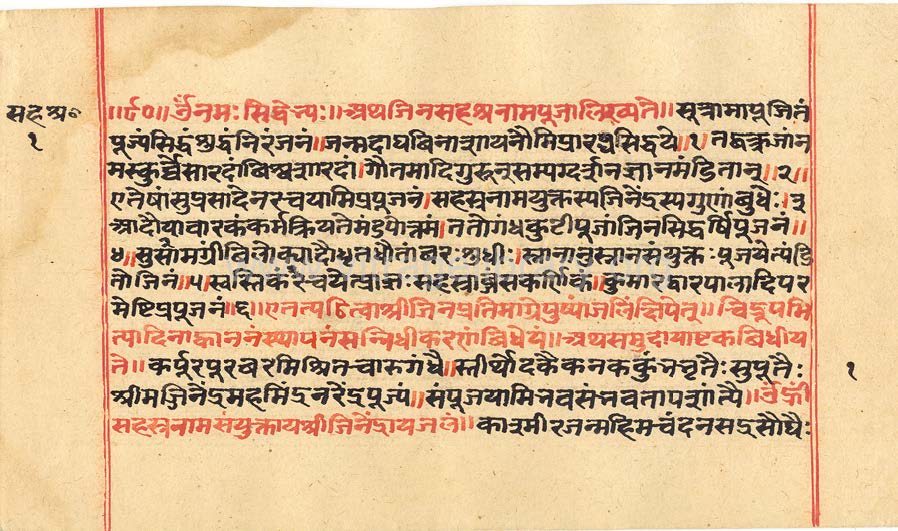 सहअ०
१
॥ऽ०॥ ॐनमःसिद्धेभ्यः॥अथजिनसहश्रनामपूजालिख्यते॥सूत्रामापूजितं
पूज्यंसिद्धंशुद्धंनिरंजनं॥जन्मदाघविनाशायनौमिप्रारब्धसिद्धये॥१
मस्कुर्वेसारदांविश्वशारदां।गौतमादिगुरून्सम्यग्दर्शनज्ञानमंडितान्॥२॥
एतेषांसुप्रसादेनरचयामिप्रपूजनं।सहस्रनामयुक्तस्यजिनेंद्रस्यगुणांबुधेः।३
आदौयावारकंकर्मक्रियते ततोगंधकुटीपूजांजिनसिद्धर्षिपूजनं॥
४॥ धृतधौतांबरशुधीः।स्नानानुस्नानसंयुक्तःपूजयेत्पंडि
तोजिनं॥५॥स्वस्तिकं कुमारद्वारपालादिपर
मेष्टिप्रपूजनं॥६॥एतत्पठित्वाश्रीजिनप्रतिमाग्रेपुष्पांजलिंक्षिपेत्॥चिद्रूपमि
त्यादिनाह्वाननंस्थापनंसन्निधीकरणंविधेयं॥अथसमुदायाष्टकंविधीय
ते॥कर्पूरपूरबरमिश्रितचारुगंधैः॥स्तीर्थोदकैकनककुंभभृतैःसुपूतैः
१
श्रीमज्जिनेंद्रमहमिंद्रनरेंद्रपूज्यं॥संपूजयामिभवसंभवतापशांत्यै॥ॐह्रीं
सहस्रनामसंयुक्तायश्रीजिनेंद्रायजलं॥काश्मीरजन्महिमचंदनसद्रसौघैः